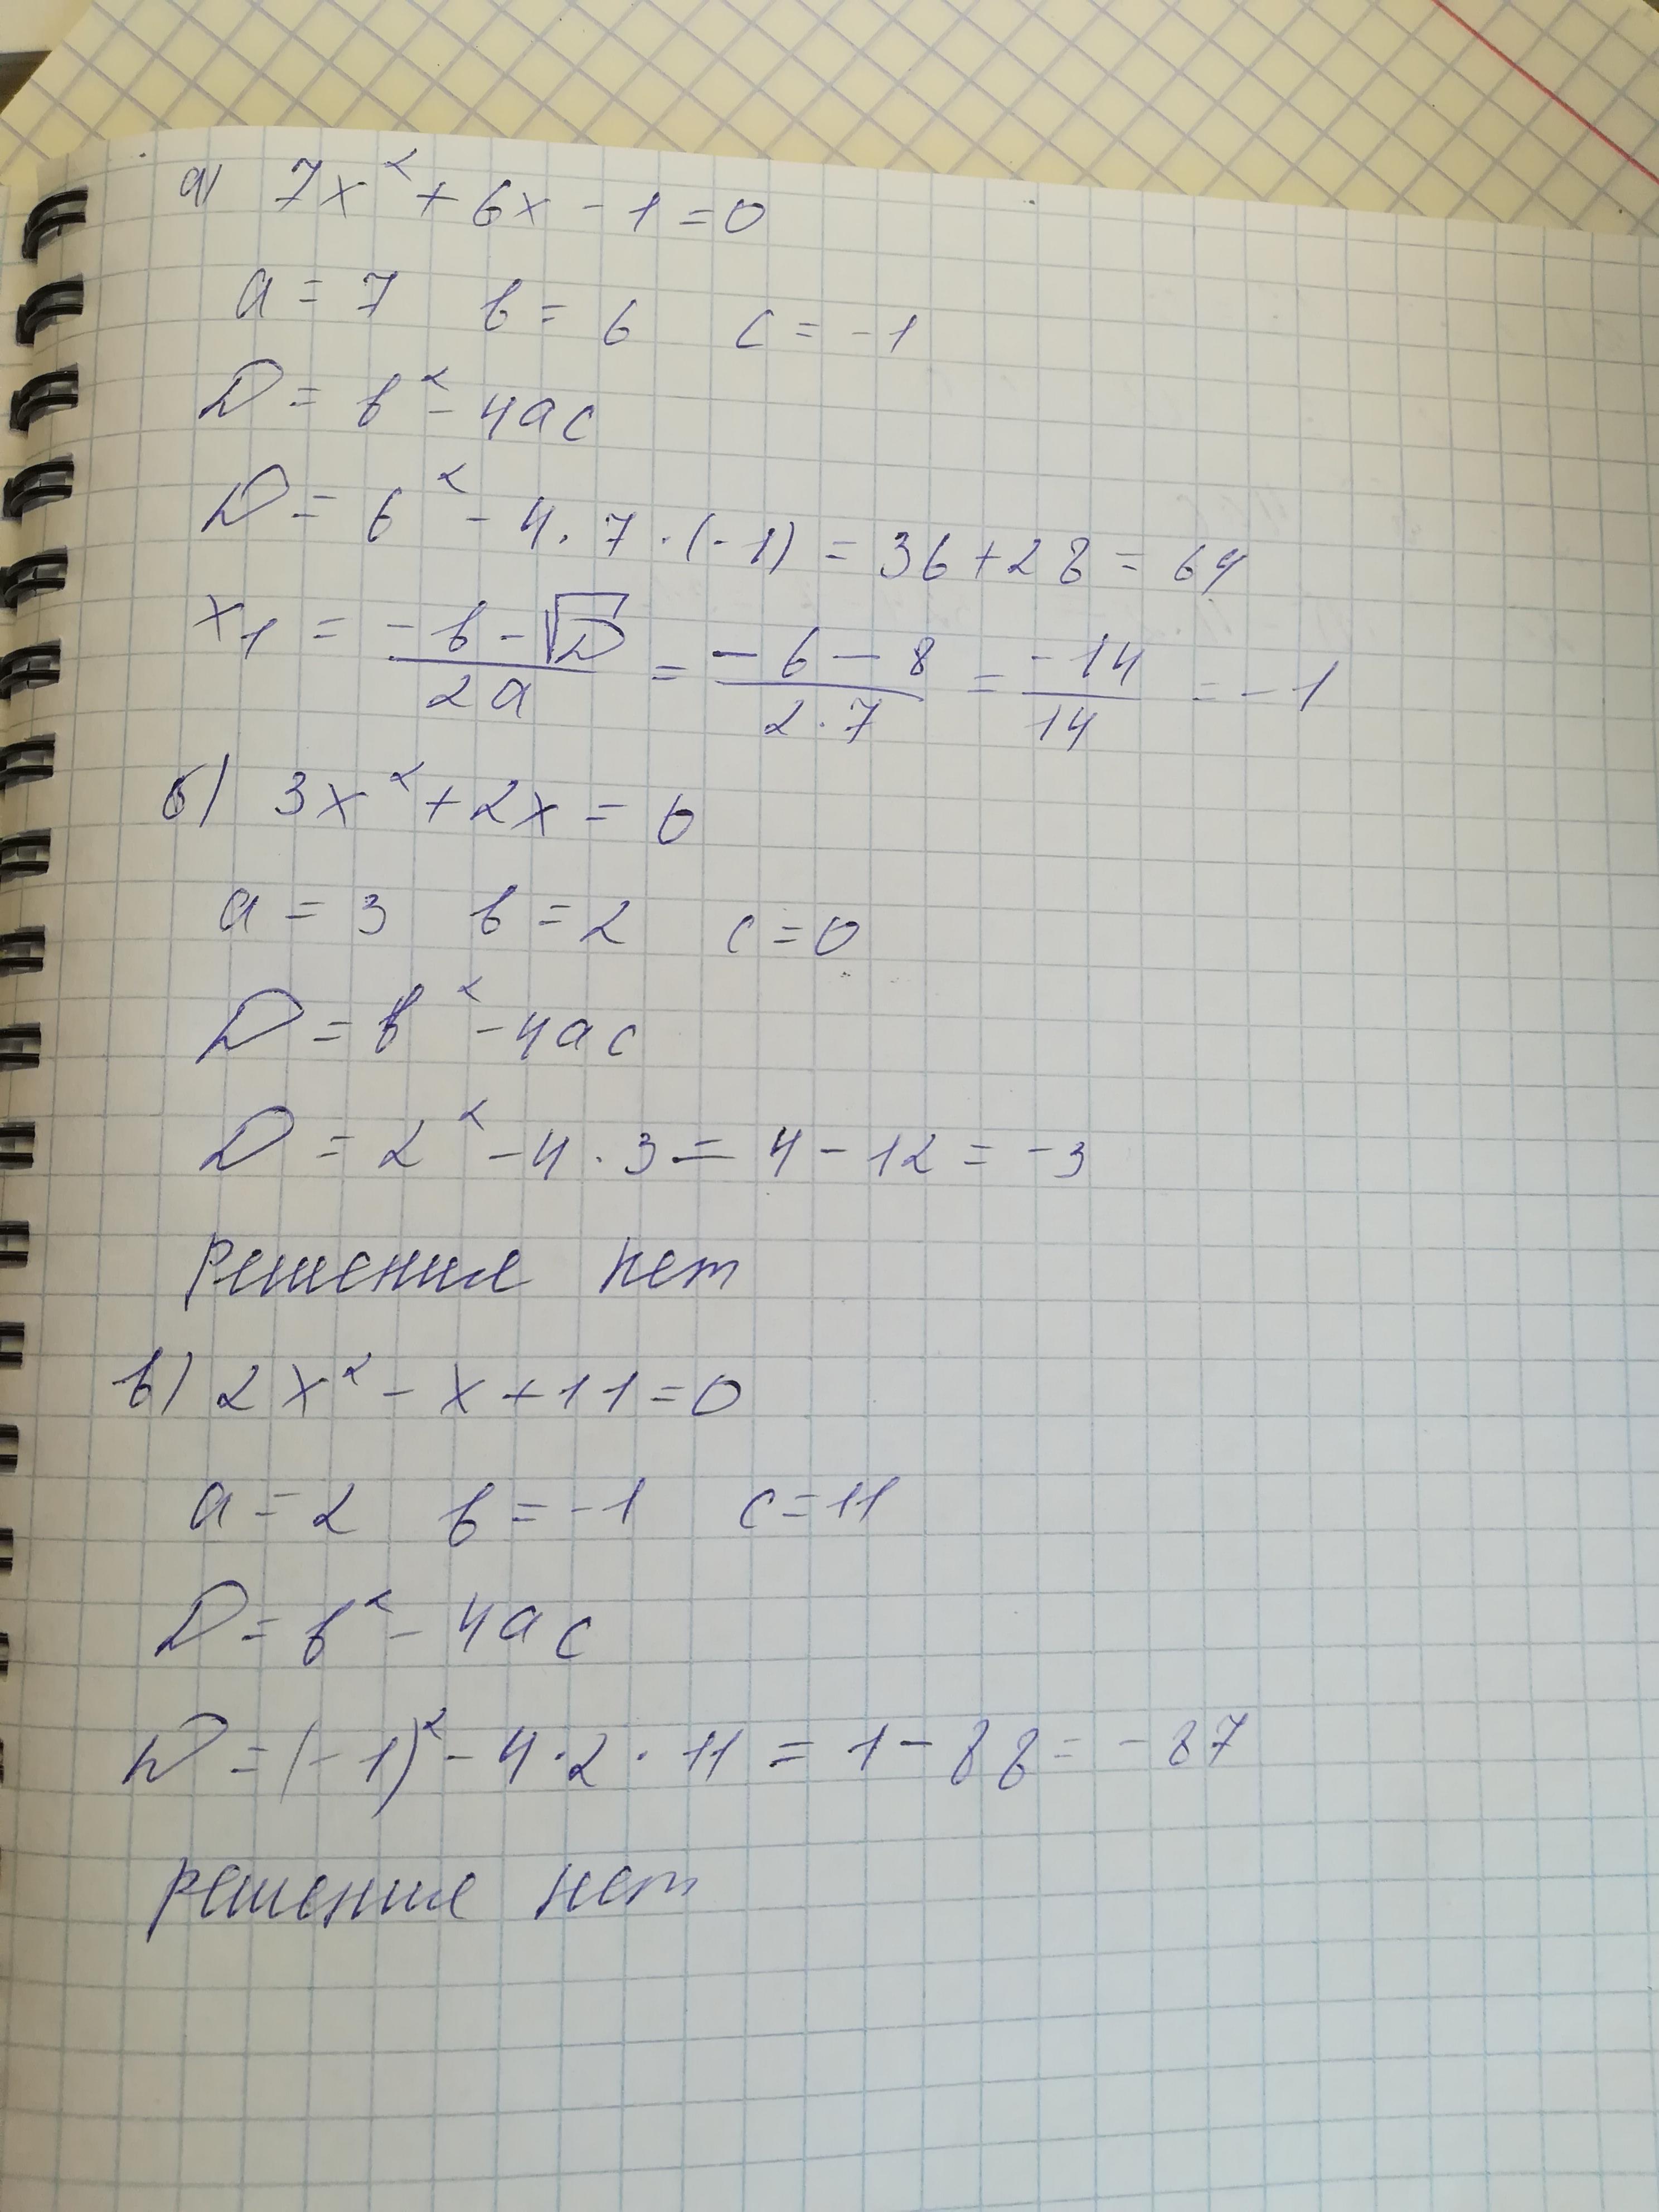 а) 7x² + 6x - 1 = 0
a = 7 b = 6 c = -1
D = b² - 4ac
D = 6² - 4 · 7 · (-1) = 36 + 28 = 64
x₁ = (-b - √D)/(2a) = (-6 - 8)/(2 · 7) = (-14)/14 = -1
б) 3x² + 2x = 0
a = 3 b = 2 c = 0
D = b² - 4ac
D = 2² - 4 · 3 = 4 - 12 = -3
решения нет
в) 2x² - x + 11 = 0
a = 2 b = -1 c = 11
D = b² - 4ac
D = (-1)² - 4 · 2 · 11 = 1 - 88 = -87
решения нет